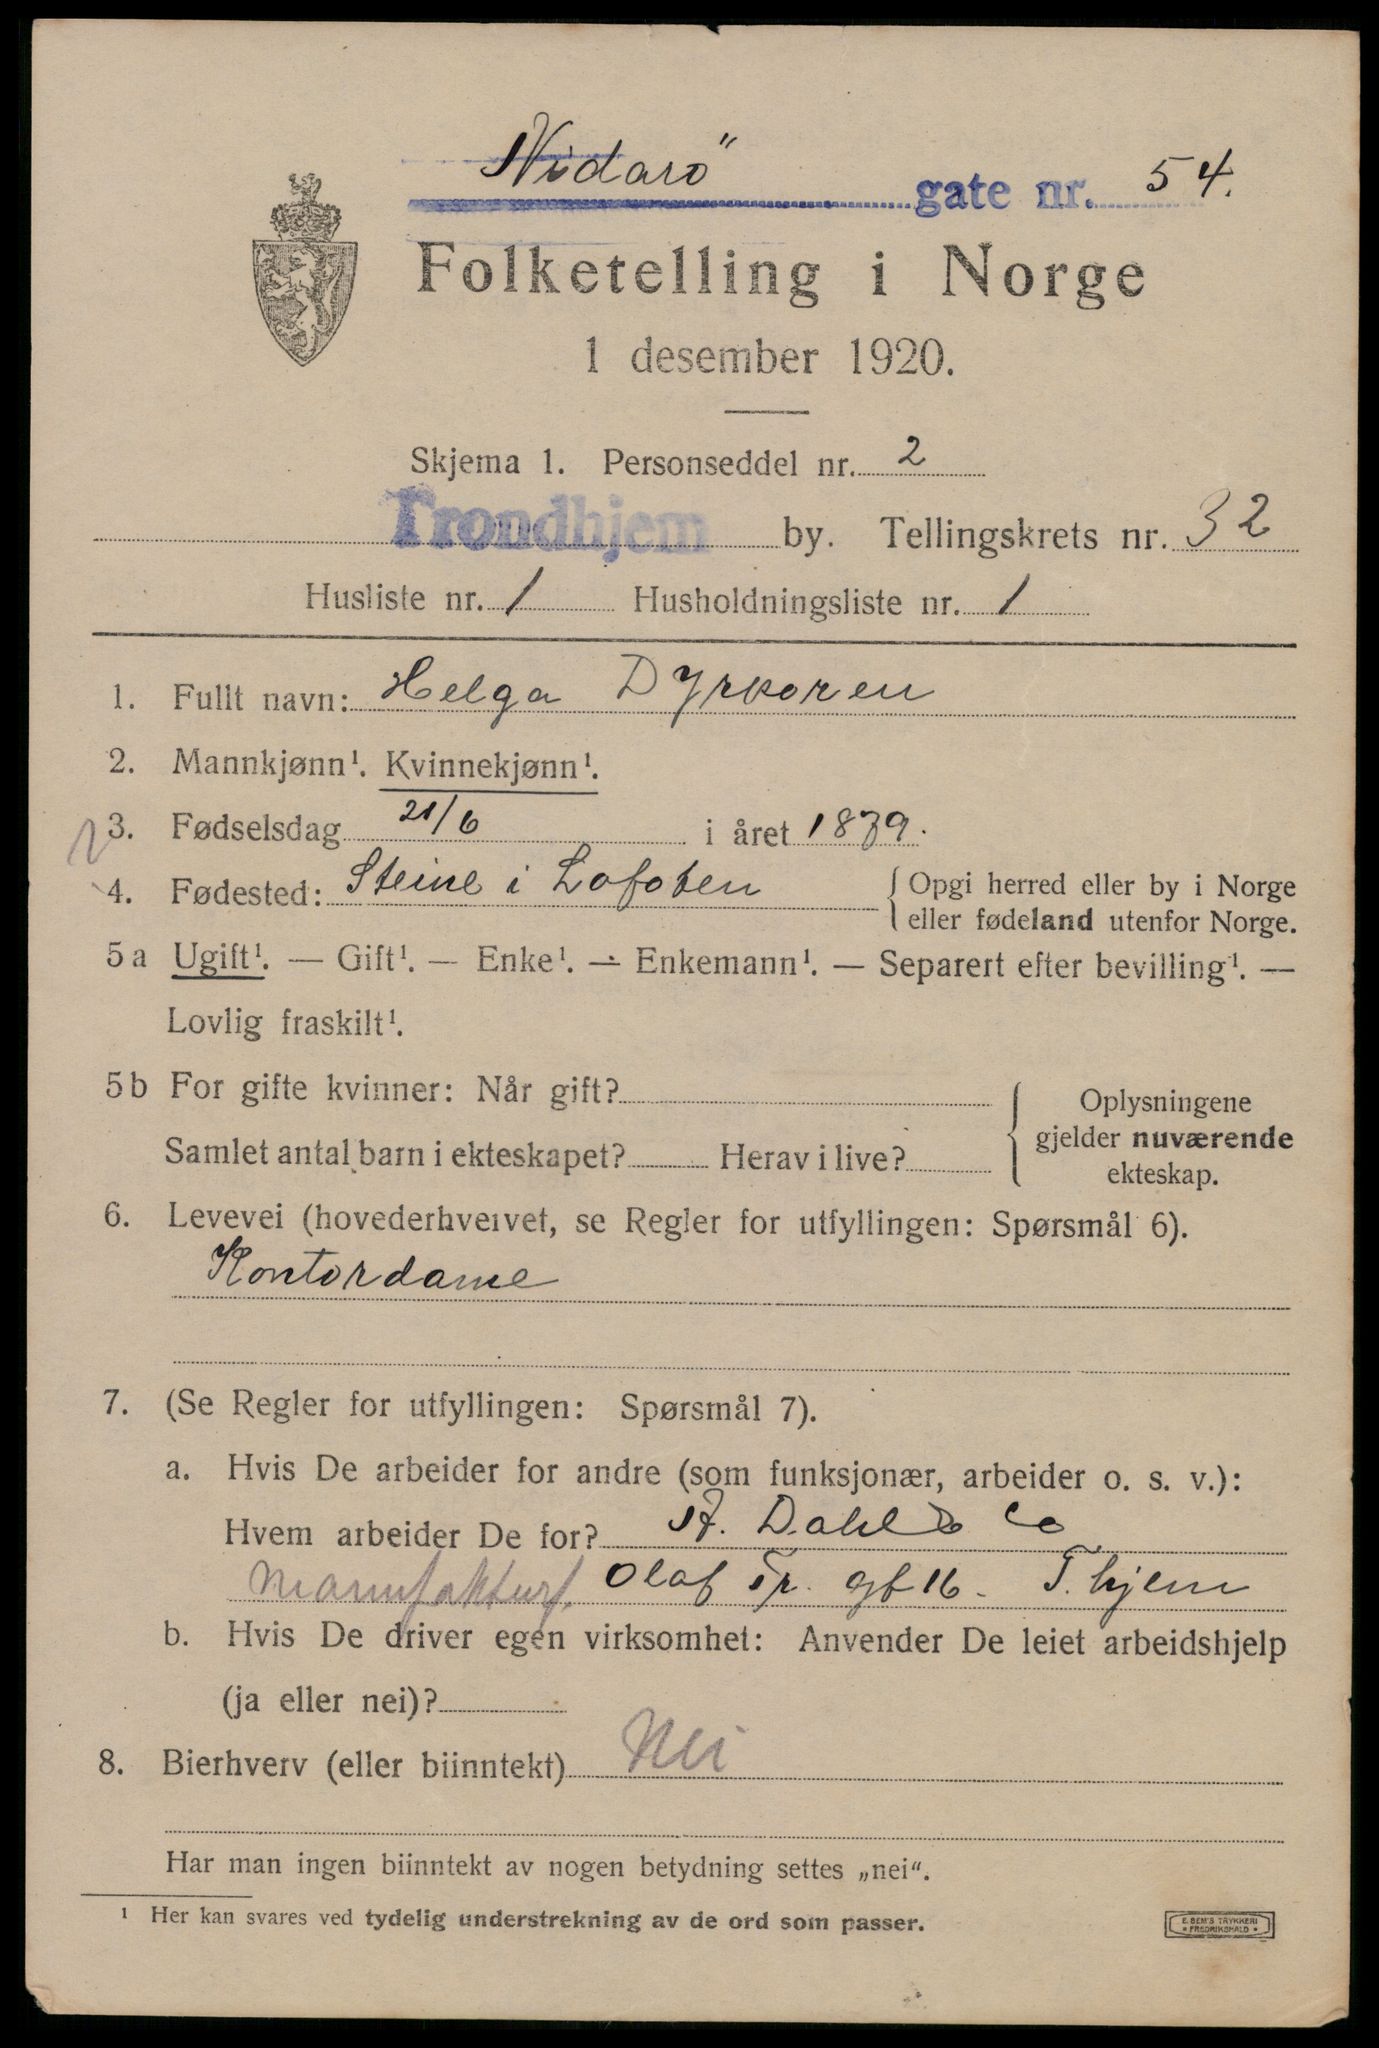 Nidarö gate nr. 54.
Folketelling i Norge
1 desember 1920.
Skjema 1. Personseddel nr. 2
Trondhjem by. Tellingskrets nr. 32
Husliste nr. 1 Husholdningsliste nr. 1
1. Fullt navn: Helga Dyrkoren
2. Mannkjønn¹. Kvinnekjønn¹.
3. Fødselsdag 21/6 i året 1879.
4. Fødested: Steine i Lofoten {Opgi herred eller by i Norge
eller fødeland utenfor Norge.
5 a Ugift¹. — Gift¹. — Enke¹. — Enkemann¹. — Separert efter bevilling¹. —
Lovlig fraskilt¹.
5 b For gifte kvinner: Når gift?
Samlet antal barn i ekteskapet? Herav i live?
Oplysningene
gjelder nuværende
ekteskap.
6. Levevei (hovederhvervet, se Regler for utfyllingen: Spørsmål 6).
Kontordame
7. (Se Regler for utfyllingen: Spørsmål 7).
a. Hvis De arbeider for andre (som funksjonær, arbeider o. s. v.):
Hvem arbeider De for? A. Dahl & Co
Manufakturf. Olaf Tr. gt 16. T.hjem
b. Hvis De driver egen virksomhet: Anvender De leiet arbeidshjelp
(ja eller nei)?
8. Bierhverv (eller biinntekt) Nei
Har man ingen biinntekt av nogen betydning settes „nei“.
¹ Her kan svares ved tydelig understrekning av de ord som passer.
E. SEM'S TRYKKERI
• FREDRIKSHALD •